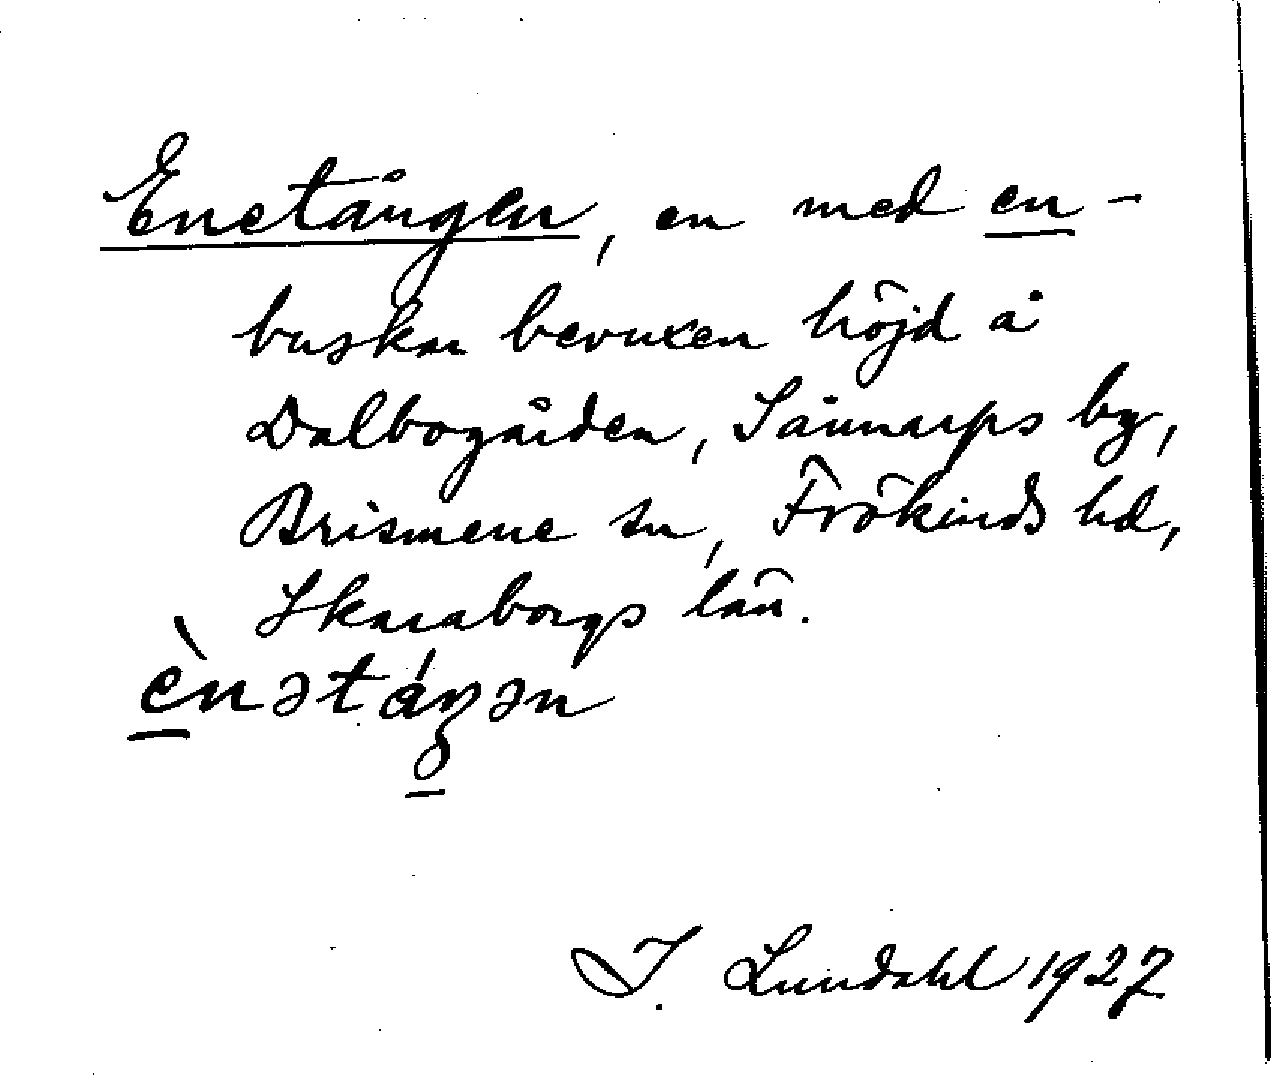 Enetången, en med en-
buskar bevuxen höjd å
Dalbogården, Sännarps by,
Brismene sn, Frökinds hd,
Skaraborgs län.
ènətáŋən
I. Lundahl 1927